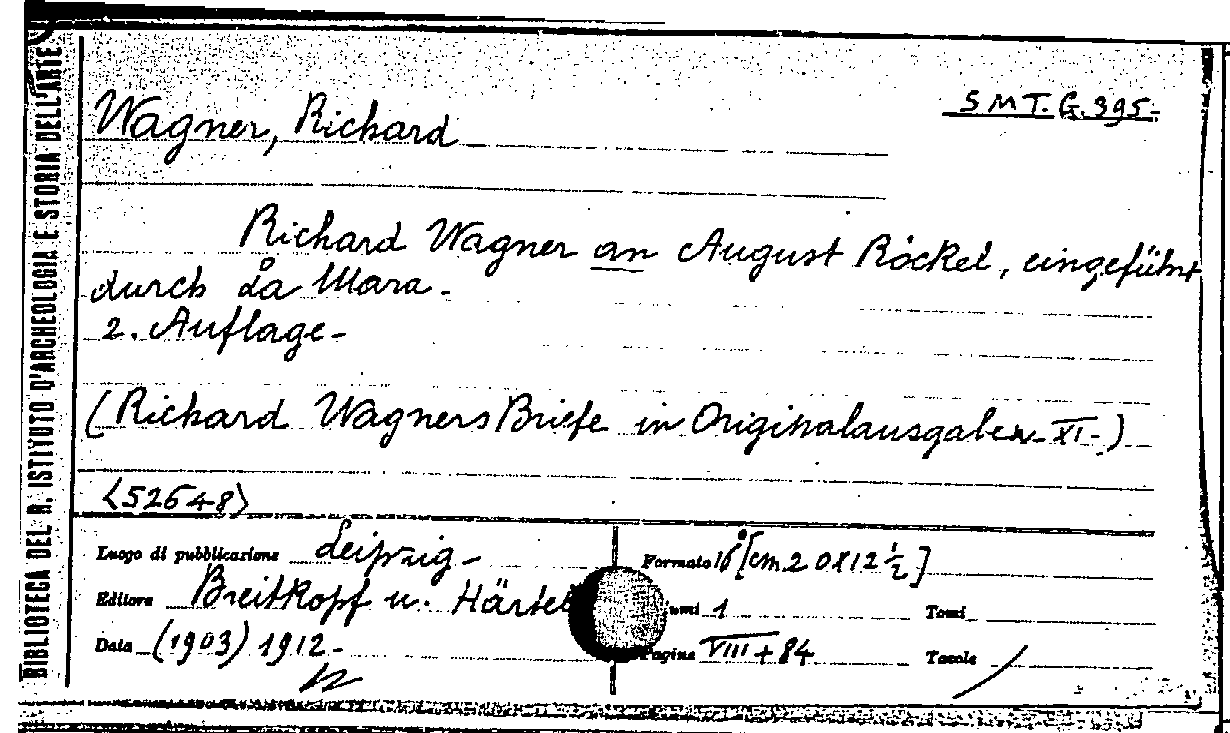 BIBLIOTECA DEL R. ISTITUTO D'ARCHEOLOGIA E STORIA DELL'ARTE
Wagner, Richard
S M T. G. 395-
Richard Wagner an August Röckel, eingeführt
durch La Mara -
2. Auflage -
(Richard Wagners Briefe in Originalausgaben - XI -)
<52648>
Luogo di pubblicazione Leipzig - Formato 16° [cm 20x12 ½]
Editore Breitkopf u. Härtel umi 1 Tomi
Data (1903) 1912 - Pagine VIII + 84 Tavole /